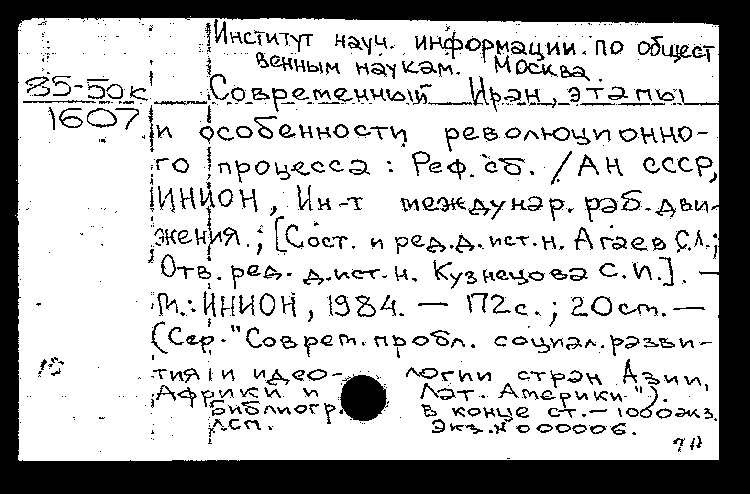 Институт науч. информации по общест
венным наукам. Москва.
85-50к Современный Иран, этапы
1607 и особенности революционно-
го процесса : Реф. сб. / АН СССР,
ИНИОН, Ин-т междунар. раб. дви-
жения.; [Сост. и ред. д. ист. н. Агаев С.Л.;
Отв. ред. д. ист. н. Кузнецова С.И.]. —
М.: ИНИОН, 1984. — 172 с. ; 20 см. —
(Сер. "Соврем. пробл. социал. разви-
тия и идео- логии стран Азии,
Африки и Лат. Америки").
Библиогр. в конце ст. — 1000 экз.
ДСП. Экз. № 000006.